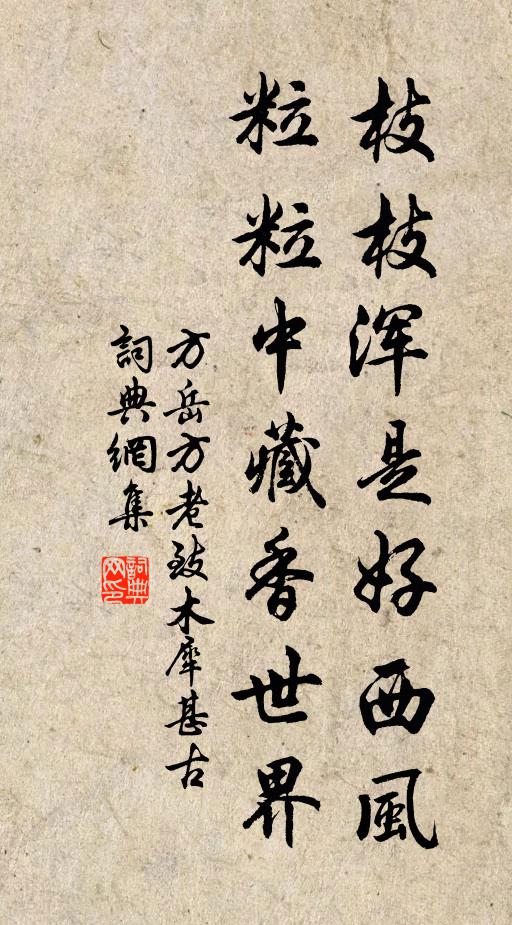 枝枝浑是好西風
粒粒中藏香世界
方岳方老致木犀甚古
詞典網集
詞典
网印